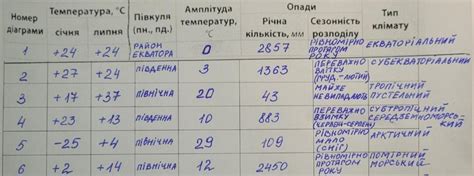 Номер діаграми | Температура, °С | Півкуля (пн., пд.) | Амплітуда температур, °С | Опади | Тип клімату
січня | липня | Річна кількість, мм | Сезонність розподілу
1 | +24 | +24 | РАЙОН ЕКВАТОРА | 0 | 2857 | РІВНОМІРНО ПРОТЯГОМ РОКУ | ЕКВАТОРІАЛЬНИЙ
2 | +27 | +24 | ПІВДЕННА | 3 | 1363 | ПЕРЕВАЖНО ВЛІТКУ (ГРУД.-ЛЮТИЙ) | СУБЕКВАТОРІАЛЬНИЙ
3 | +17 | +37 | ПІВНІЧНА | 20 | 43 | МАЙЖЕ НЕ ВИПАДАЮТЬ | ТРОПІЧНИЙ ПУСТЕЛЬНИЙ
4 | +23 | +13 | ПІВДЕННА | 10 | 883 | ПЕРЕВАЖНО ВЗИМКУ (ЧЕРВЕНЬ-СЕРПЕНЬ) | СУБТРОПІЧНИЙ СЕРЕДЗЕМНОМОРСЬКИЙ
5 | -25 | +4 | ПІВНІЧНА | 29 | 109 | РІВНОМІРНО МАЛО (СНІГ) | АРКТИЧНИЙ
6 | +2 | +14 | ПІВНІЧНА | 12 | 2450 | РІВНОМІРНО ПРОТЯГОМ РОКУ | ПОМІРНИЙ МОРСЬКИЙ